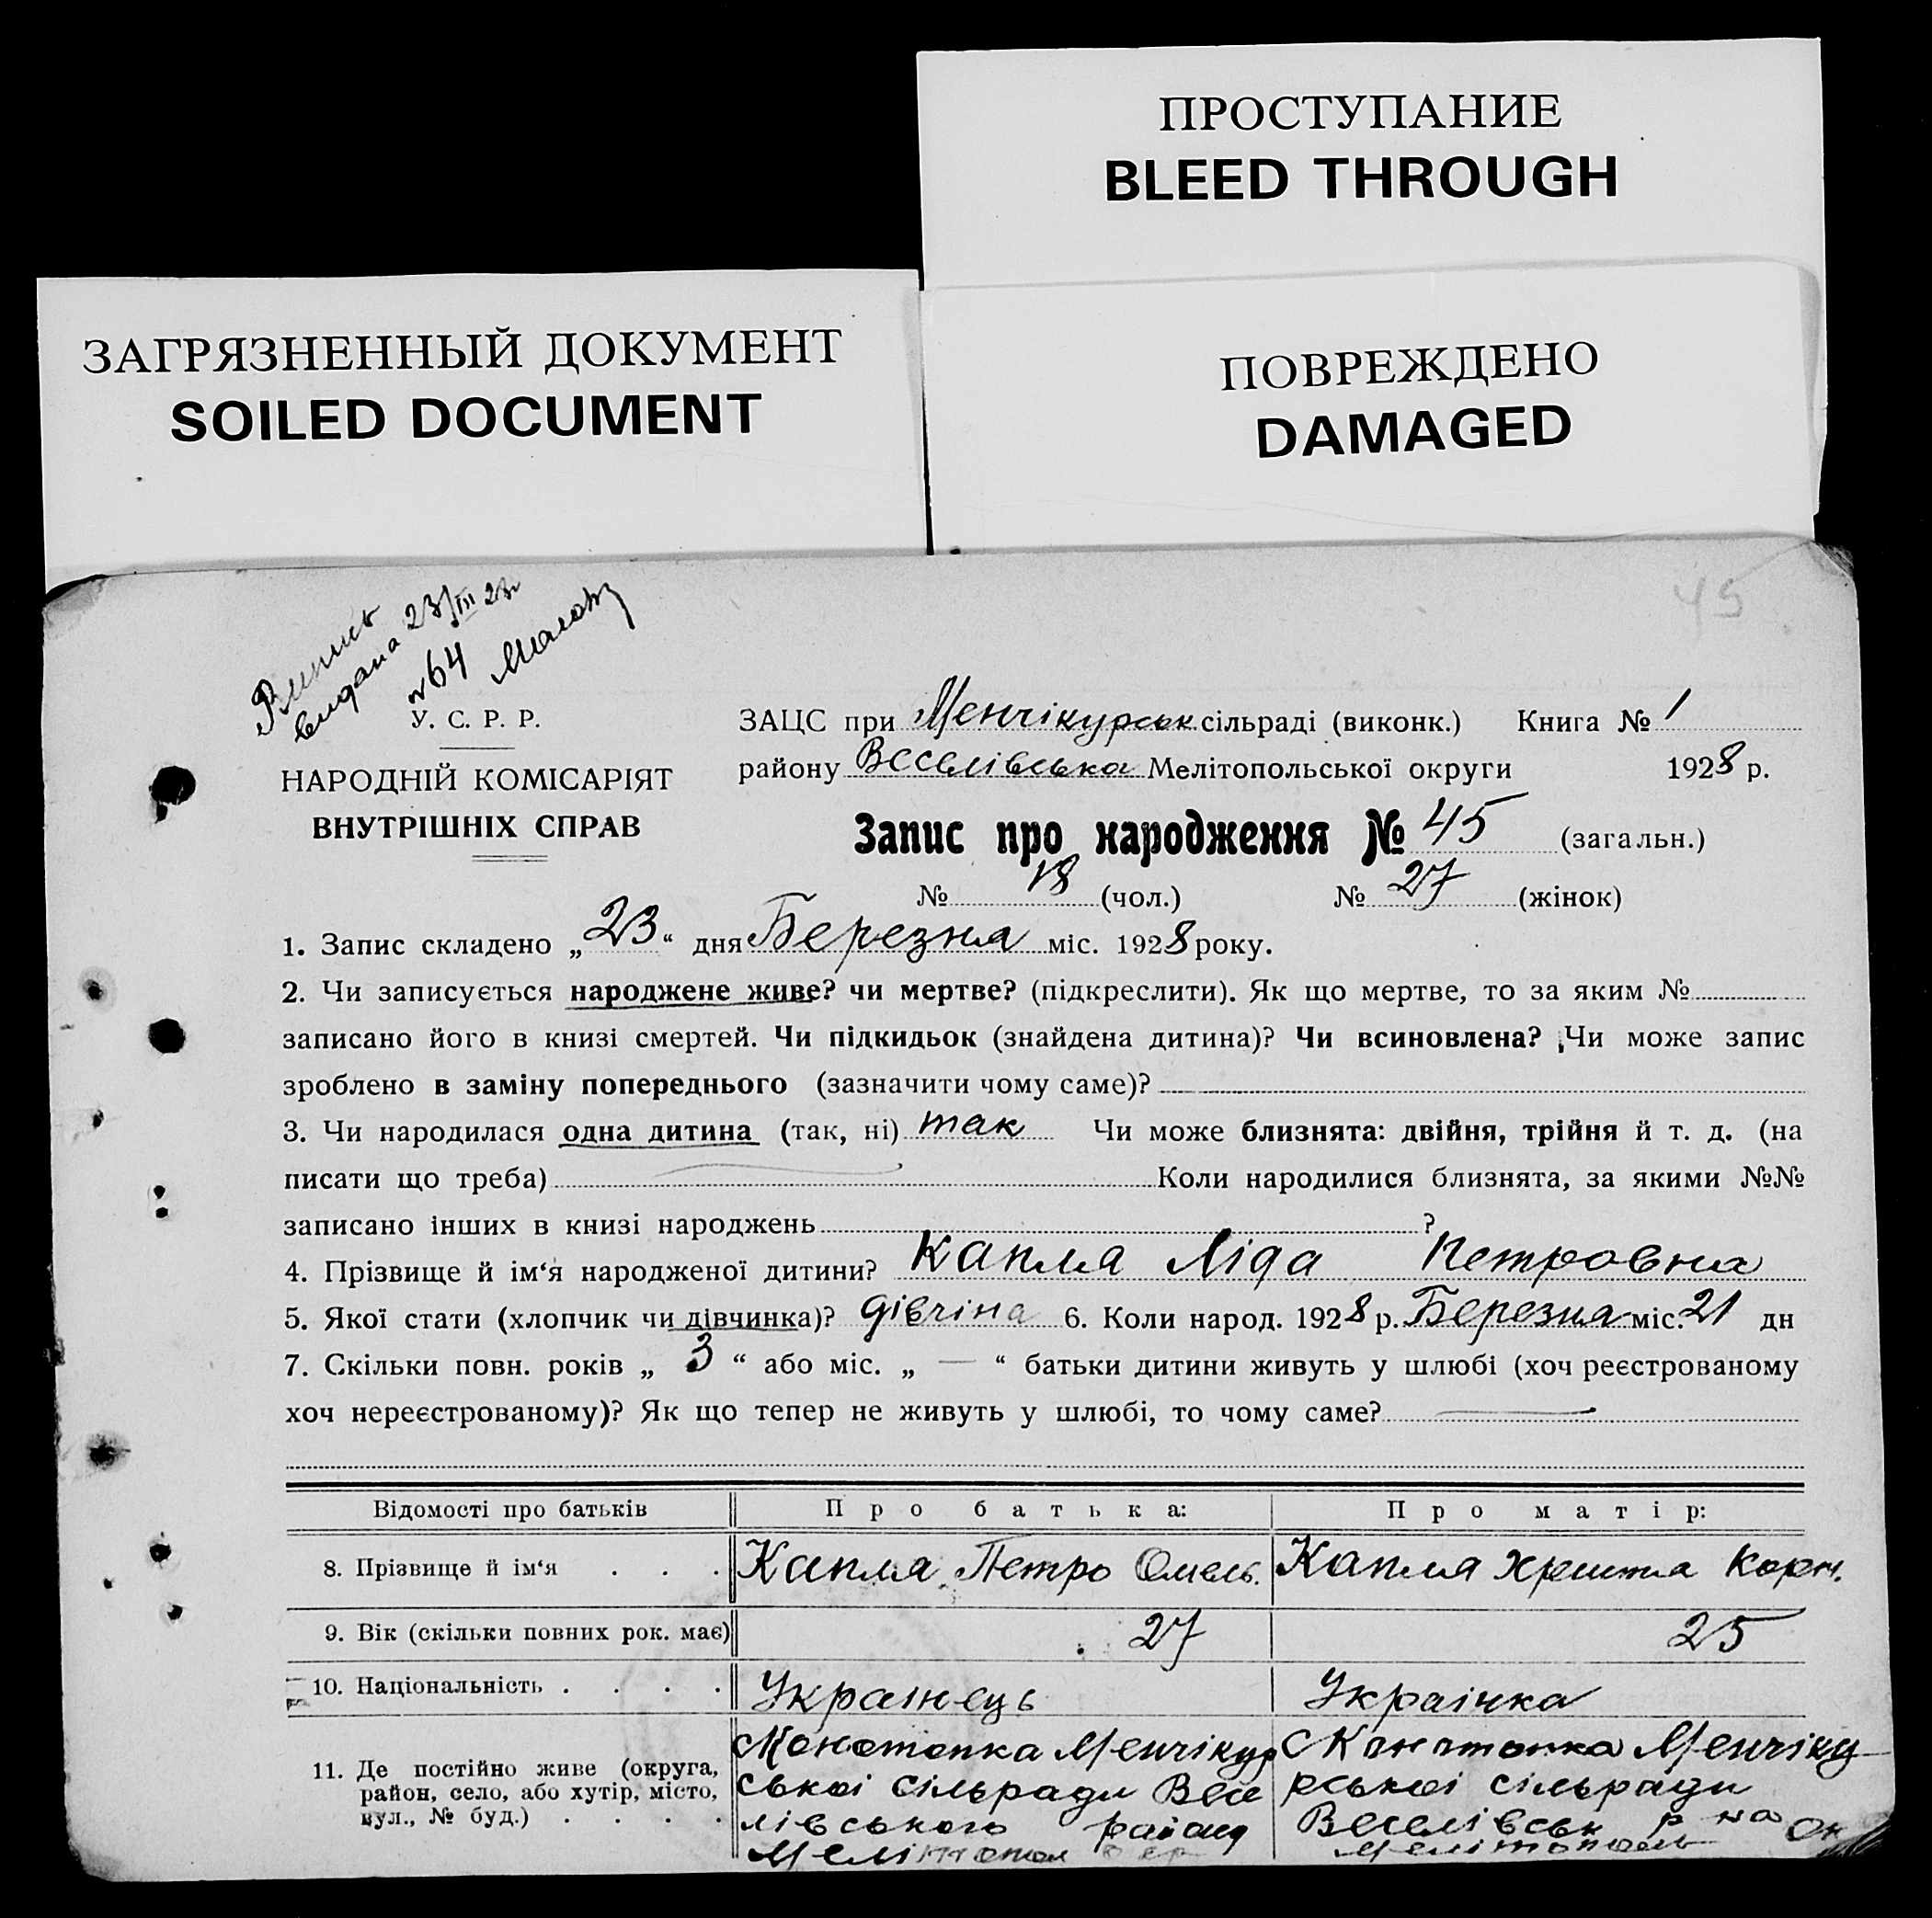 ПРОСТУПАНИЕ
BLEED THROUGH
ЗАГРЯЗНЕННЫЙ ДОКУМЕНТ
SOILED DOCUMENT
ПОВРЕЖДЕНО
DAMAGED
45
Випись
видана 23/III 28
№64
У. С. Р. Р.
НАРОДНІЙ КОМІСАРІЯТ
ВНУТРІШНІХ СПРАВ
ЗАЦС при Менчікурськ сільраді (виконк.) Книга № 1
району Веселівська Мелітопольської округи 1928 р.
Запис про народження № 45 (загальн.)
№ 18 (чол.) № 27 (жінок)
1. Запис складено „23“ дня Березня міс. 1928 року.
2. Чи записується народжене живе? чи мертве? (підкреслити). Як що мертве, то за яким №
записано його в книзі смертей. Чи підкидьок (знайдена дитина)? Чи всиновлена? Чи може запис
зроблено в заміну попереднього (зазначити чому саме)?
3. Чи народилася одна дитина (так, ні) так Чи може близнята: двійня, трійня й т. д. (на
писати що треба) Коли народилися близнята, за якими №№
записано інших в книзі народжень ?
4. Прізвище й ім‘я народженої дитини? Капля Ліда Петровна
5. Якої стати (хлопчик чи дівчинка)? дівчіна 6. Коли народ. 1928 р. Березня міс. 21 дн
7. Скільки повн. років „ 3 “ або міс. „ — “ батьки дитини живуть у шлюбі (хоч реєстрованому
хоч нереєстрованому)? Як що тепер не живуть у шлюбі, то чому саме?
Відомості про батьків Про батька: Про матір:
8. Прізвище й ім‘я . . . Капля Петро Омель. Капля Христя Корн.
9. Вік (скільки повних рок. має) 27 25
10. Національність . . . . Українець Українка
11. Де постійно живе (округа, район, село, або хутір, місто, вул., № буд.) . . . .
Конотопка Менчікур
ської сільради Весе
лівського району
Мелітопол
с Конотопка Менчіку
рської сільради
Веселівськ р на Ок
Мелітополь